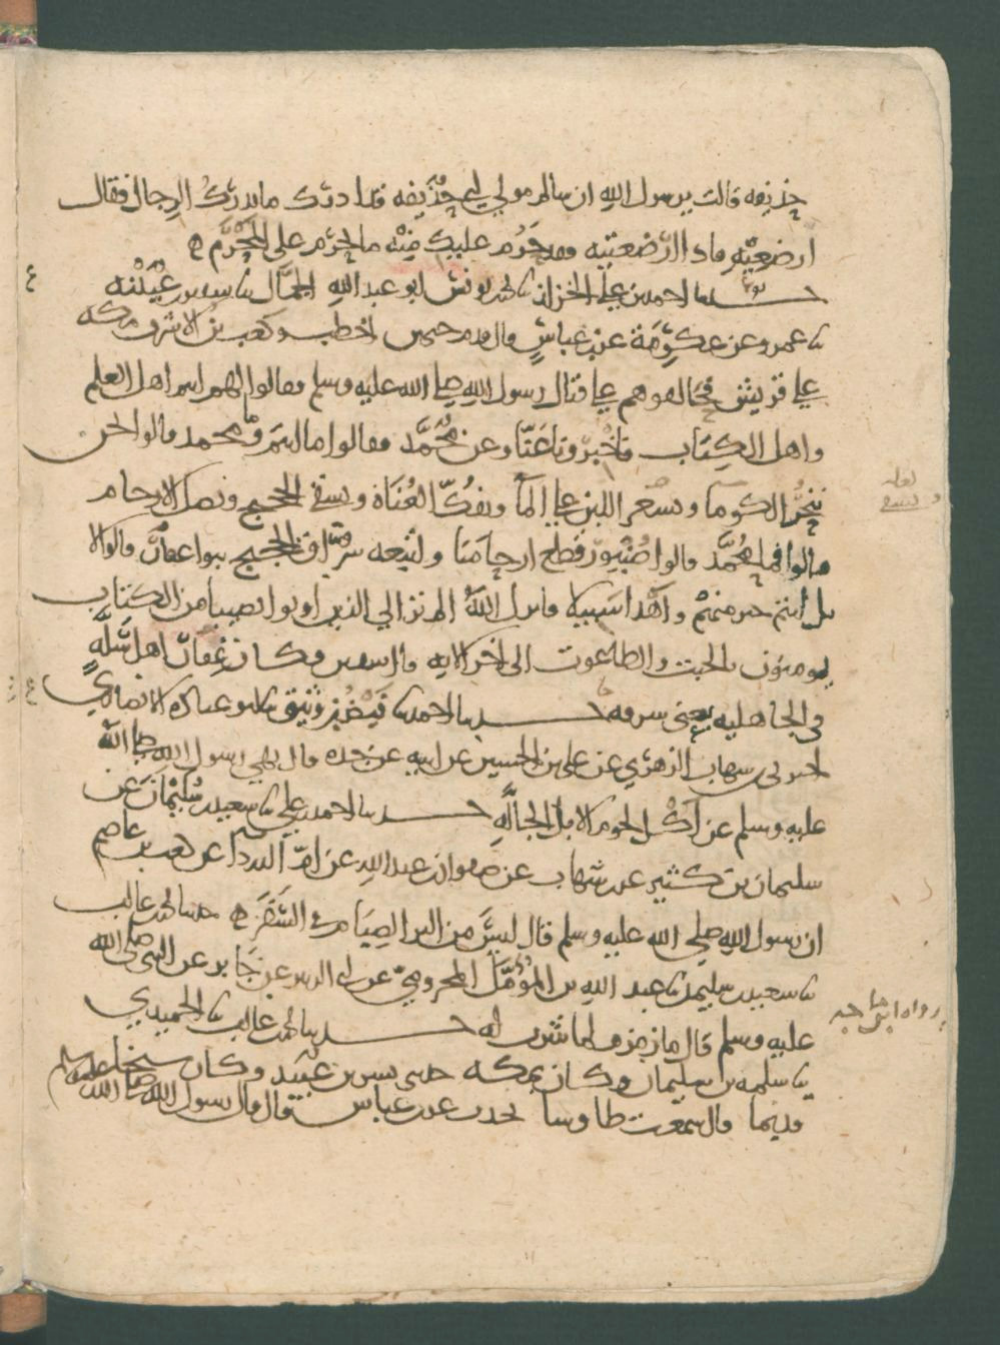 حذيفه قالت يرسول الله ان سالم مولي لابي حذيفه قد ادرك ما يدرك الرجال فقال
ارضعيه فاذا ارضعتيه فقد حرم عليك منه ما يحرم على المحرم ه
حدثنا احمد بن علي الخزاز ثنا محمد بن يونس ابو عبد الله الجمال ثنا سفيان بن عيينه
ثنا عمرو عن عكرمة عن ابن عباس قال قدم حيي بن اخطب وكعب بن الاشرف مكه
على قريش فحالفوهم على قتال رسول الله صلى الله عليه وسلم فقالوا لهم انتم اهل العلم
واهل الكتاب فاخبرونا عنا وعن محمد فقالوا ما انتم وما محمد قالوا نحن
ننحر الكوما ونسقي اللبن على الماء ونفك العناة ونسقي الحجيج ونصل الارحام
قالوا فما محمد قالوا صنبور قطع ارحامنا واتبعه سراق الحجيج بنوا غفار قالوا لا
بل انتم خير منهم واهدا سبيلا فانزل الله الم تر الي الذين اوتوا نصيبا من الكتاب
يومنون بالجبت والطاغوت الى اخر الايه قال سفين وكان غفار اهل سلة
في الجاهليه يعني سرقه حدثنا احمد ثنا فيض بن وثيق ثنا ابو عباده الانصاري
اخبرني شهاب الزهري عن علي بن الحسين عن ابيه عن جده قال نهي رسول الله صلى الله
عليه وسلم عن اكل لحوم الابل الجلالة حدثنا احمد بن علي ثنا سعيد بن سليمان عن
سليمان بن كثير عن شهاب عن صفوان بن عبد الله عن ام الدرداء عن كعب بن عاصم
ان رسول الله صلي الله عليه وسلم قال ليس من البر الصيام في السفر ه حدثنا محمد بن غالب
ثنا سعيد بن سليمن ثنا عبد الله بن المؤمل المخزومي عن ابي الزبير عن جابر عن النبي صلى الله
عليه وسلم قال ما زمزم لما شرب له حدثنا محمد بن غالب ثنا الحميدي
ثنا سلمه بن سليمان وكان بمكه حدثني بن عبيد وكان شيخا
قديما قال سمعت طاوسا يحدث عن عباس قال قال رسول الله صلى الله عليه وسلم
لعله
ونسقي
رواه ابن ماجه